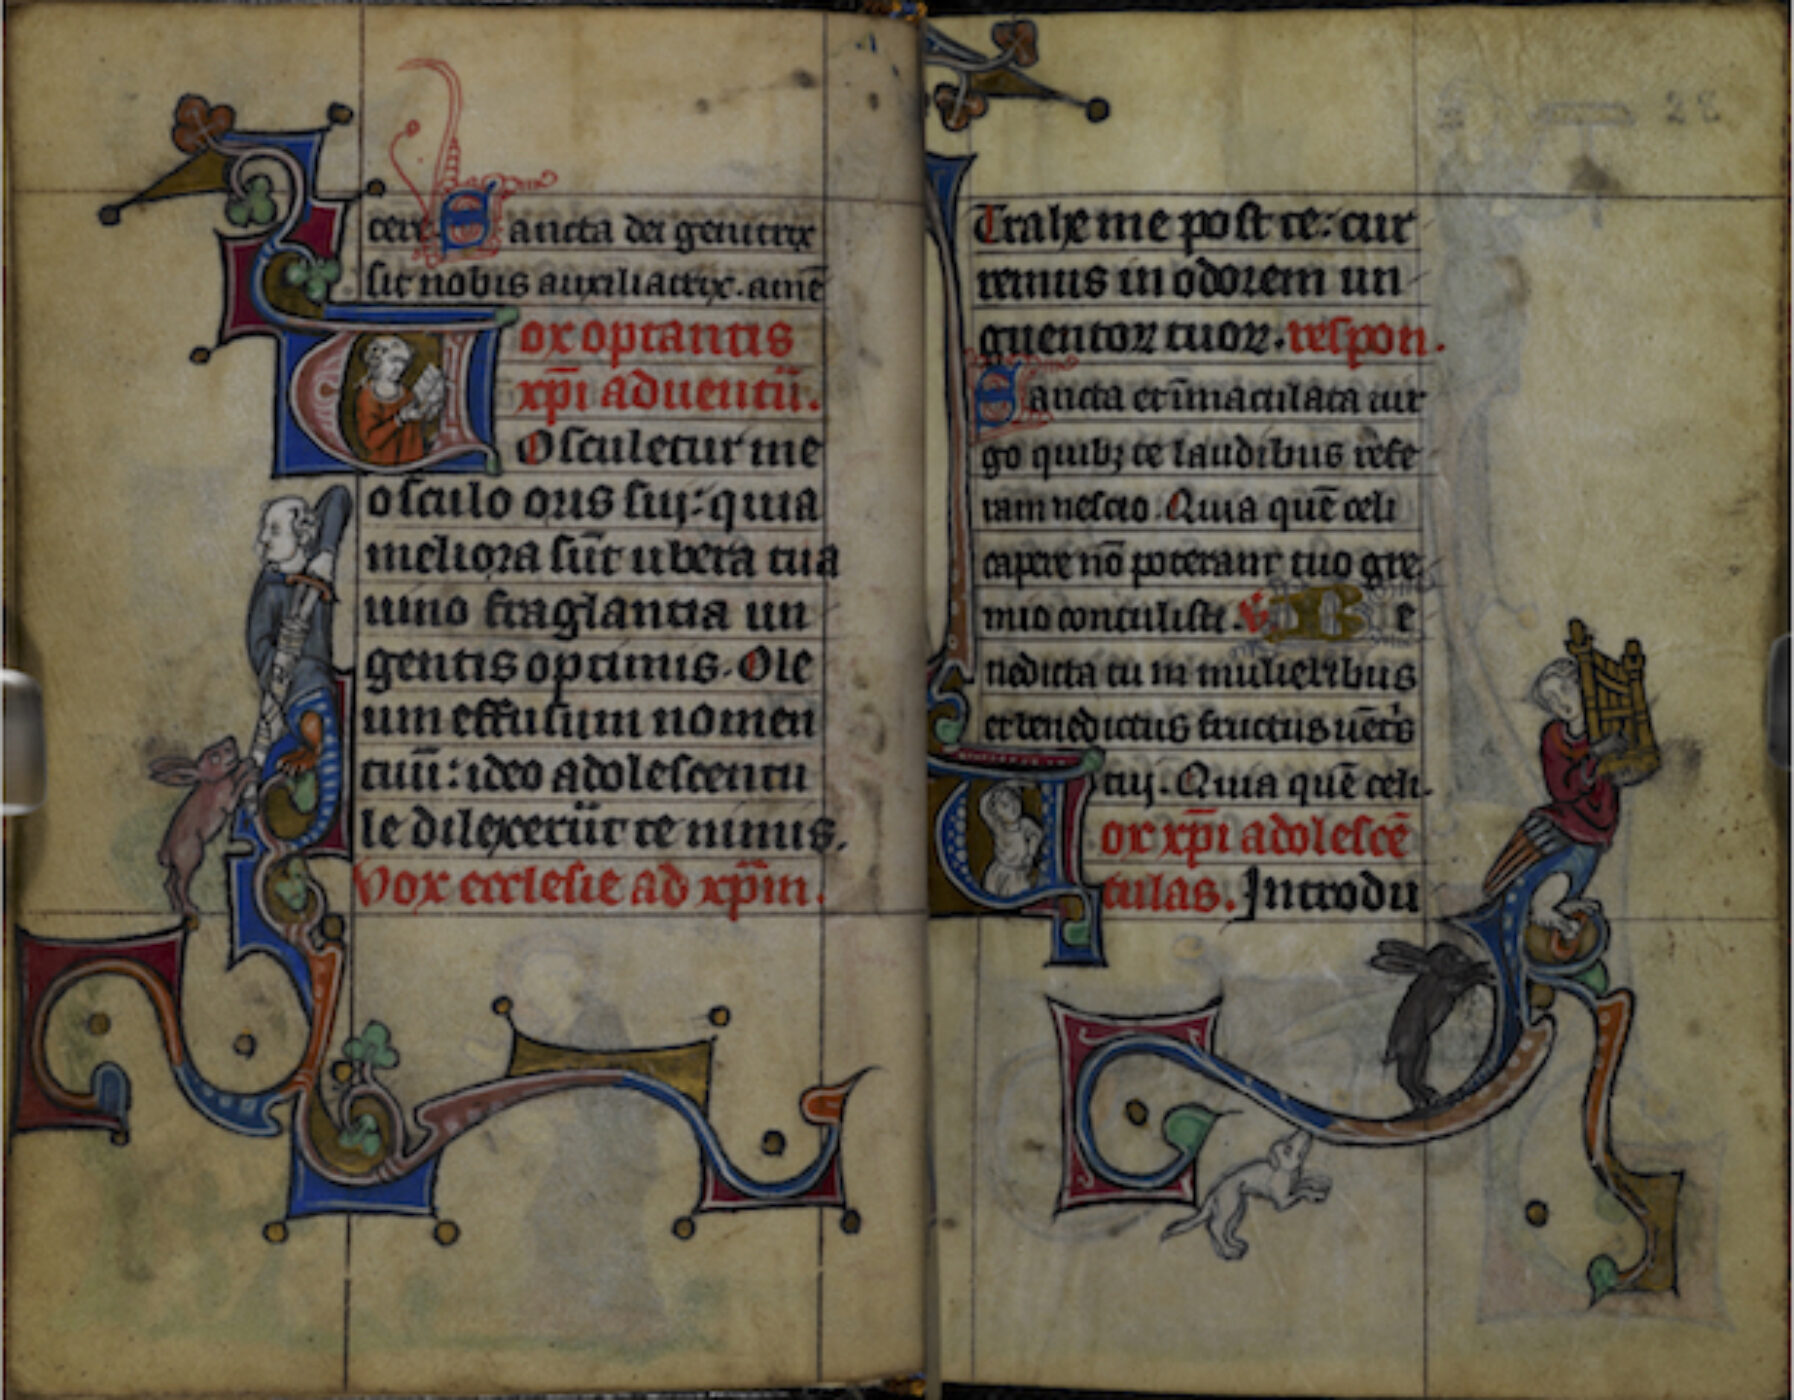 cere. Sancta dei genitrix
sit nobis auxiliatrix. amē
Vox optantis
xp̄i aduentū.
Osculetur me
osculo oris sui: quia
meliora sūt ubera tua
uino fraglantia un
gentis optimis. Ole
um effusum nomen
tuū: ideo adolescentu
le dilexerūt te nimis.
Vox ecclesie ad xp̄m.
28
Trahe me post te: cur
remus in odorem un
guentoꝝ tuoꝝ. respon.
Sancta et īmaculata uir
go quibꝫ te laudibus refe
ram nescio. Quia quē celi
capere nō poterant tuo gre
mio contulisti. Be
nedicta tu in mulieribus
et benedictus fructus uētris
tui. Quia quē celi.
Vox xp̄i adolescē
tulas. Introdu